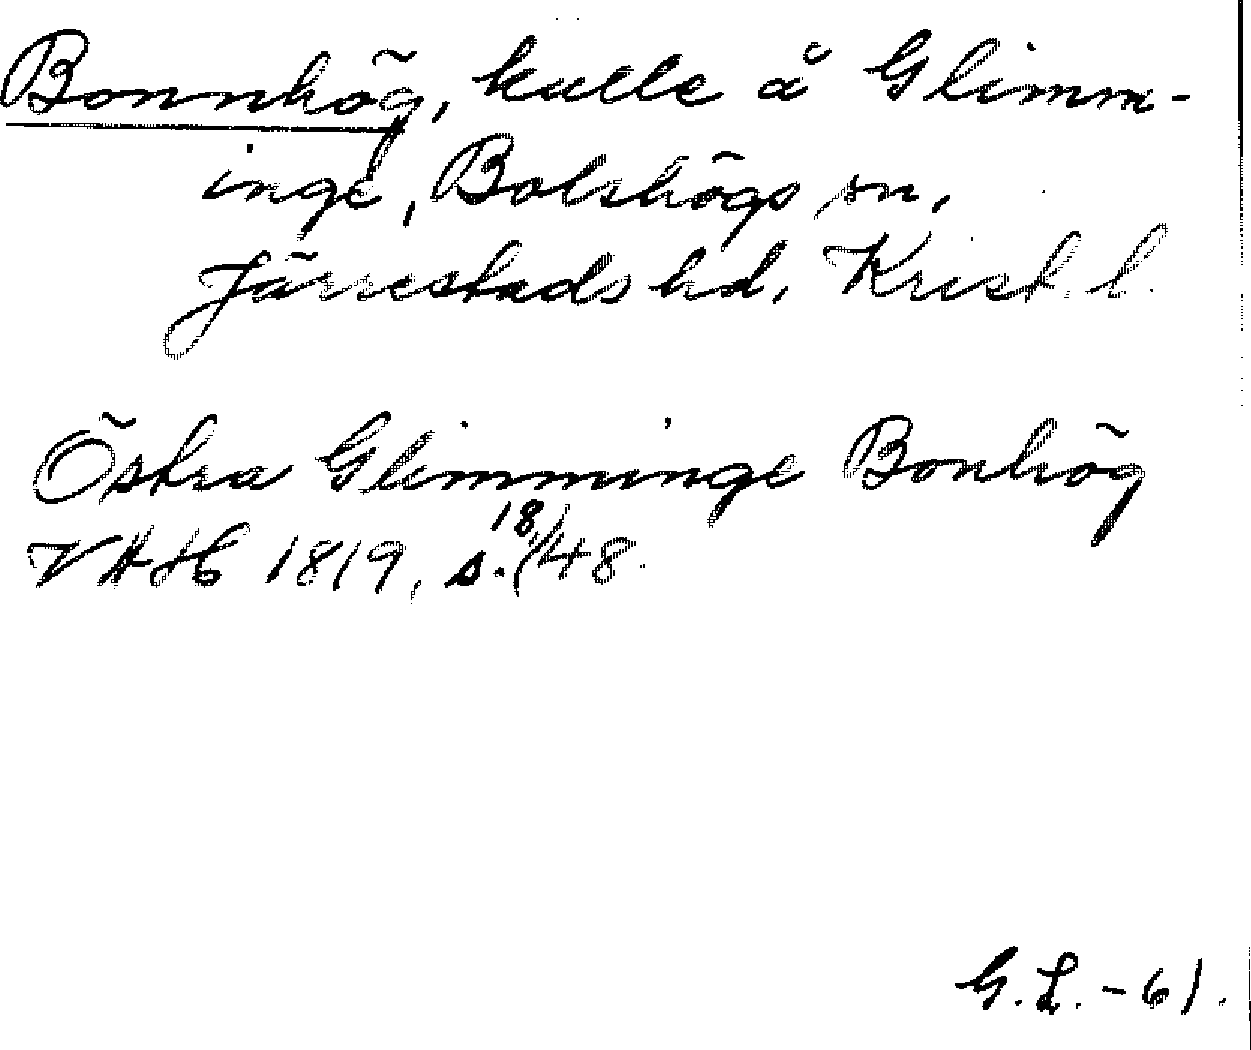 Bonnhög, kulle å Glimm-
inge, Bolshögs sn,
Järrestads hd, Krist. l.
Östra Glimminge Bonhög
VAH 1819, s. 18/48.
G.L. - 61.